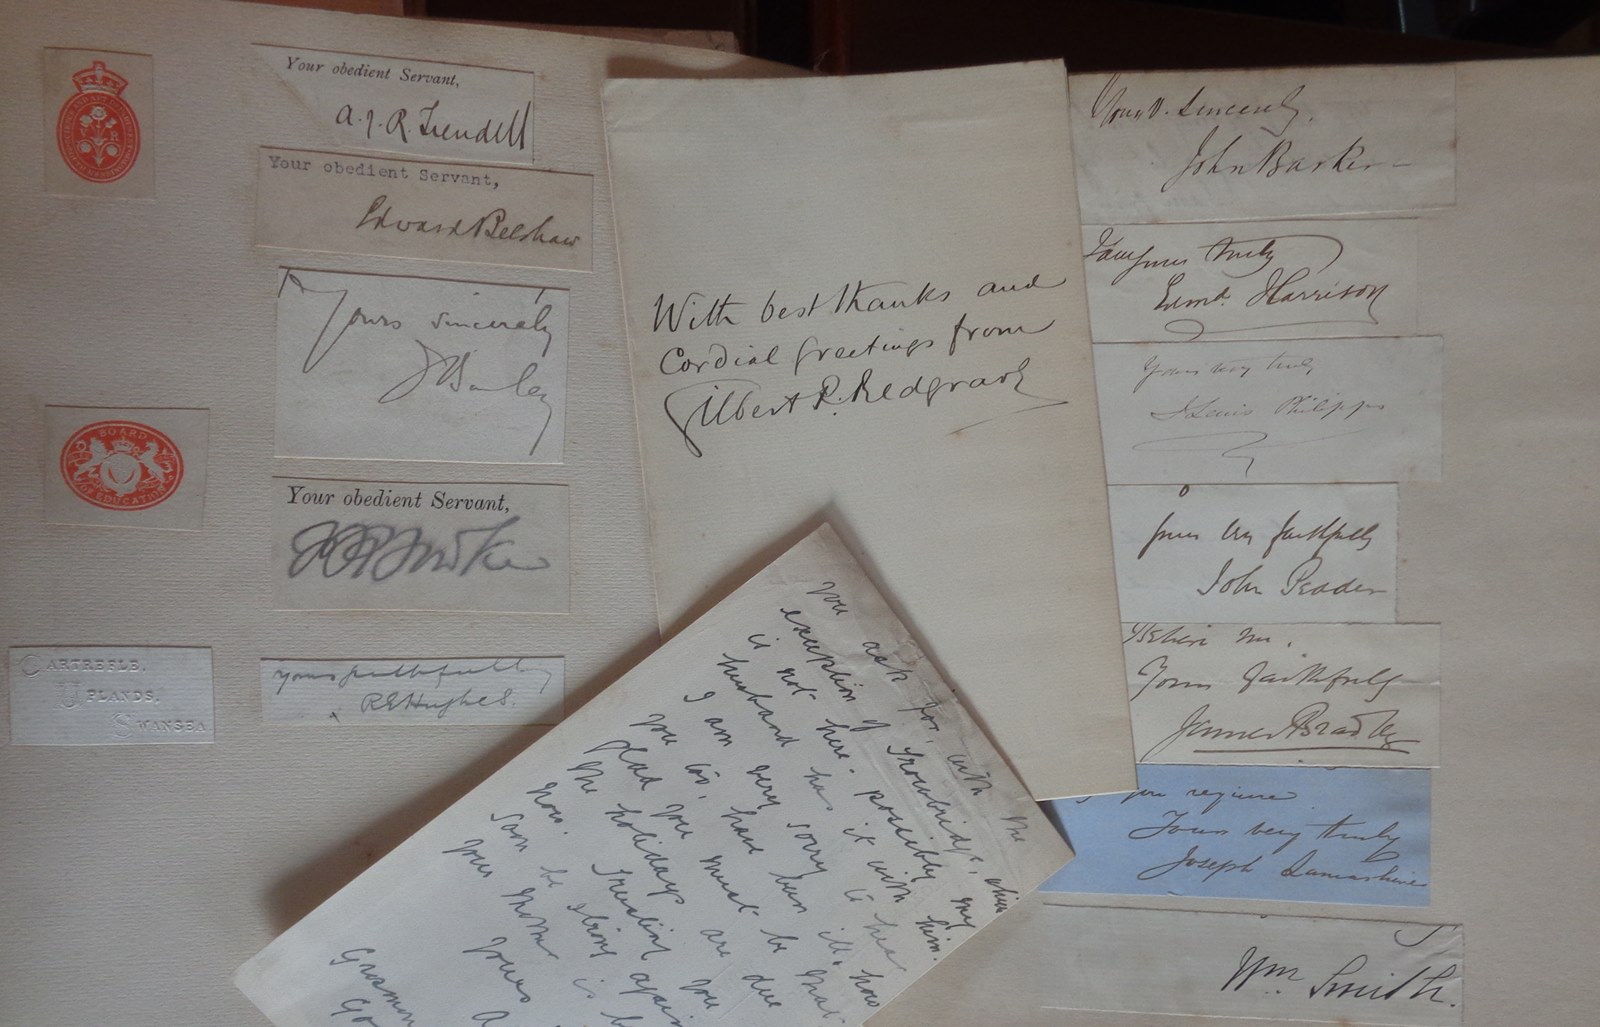 Your obedient Servant,
A. J. R. Trendell
Your obedient Servant,
Edward Belshaw
Yours sincerely
Your obedient Servant,
BOARD
OF EDUCATION
CARTREFLE,
UPLANDS,
SWANSEA
Yours faithfully
R E Hughes.
With best thanks and
Cordial greetings from
Gilbert R. Redgrave
you ask for, with the
exception of Trowbridge, which
is not here. possibly my
husband has it with him.
I am very sorry to hear
you too, have been ill, how
glad you must be that
the holidays are due
now. Trusting you
soon be strong again
your mother is
yours
Sincerely,
John Barker
yours truly
Edmd. Harrison
Yours very truly
J Lewis Philipps
Yours very faithfully
John Pedder
Believe me,
Yours faithfully
James Bradley
you require
Yours very truly
Joseph Lancashire
Wm. Smith.